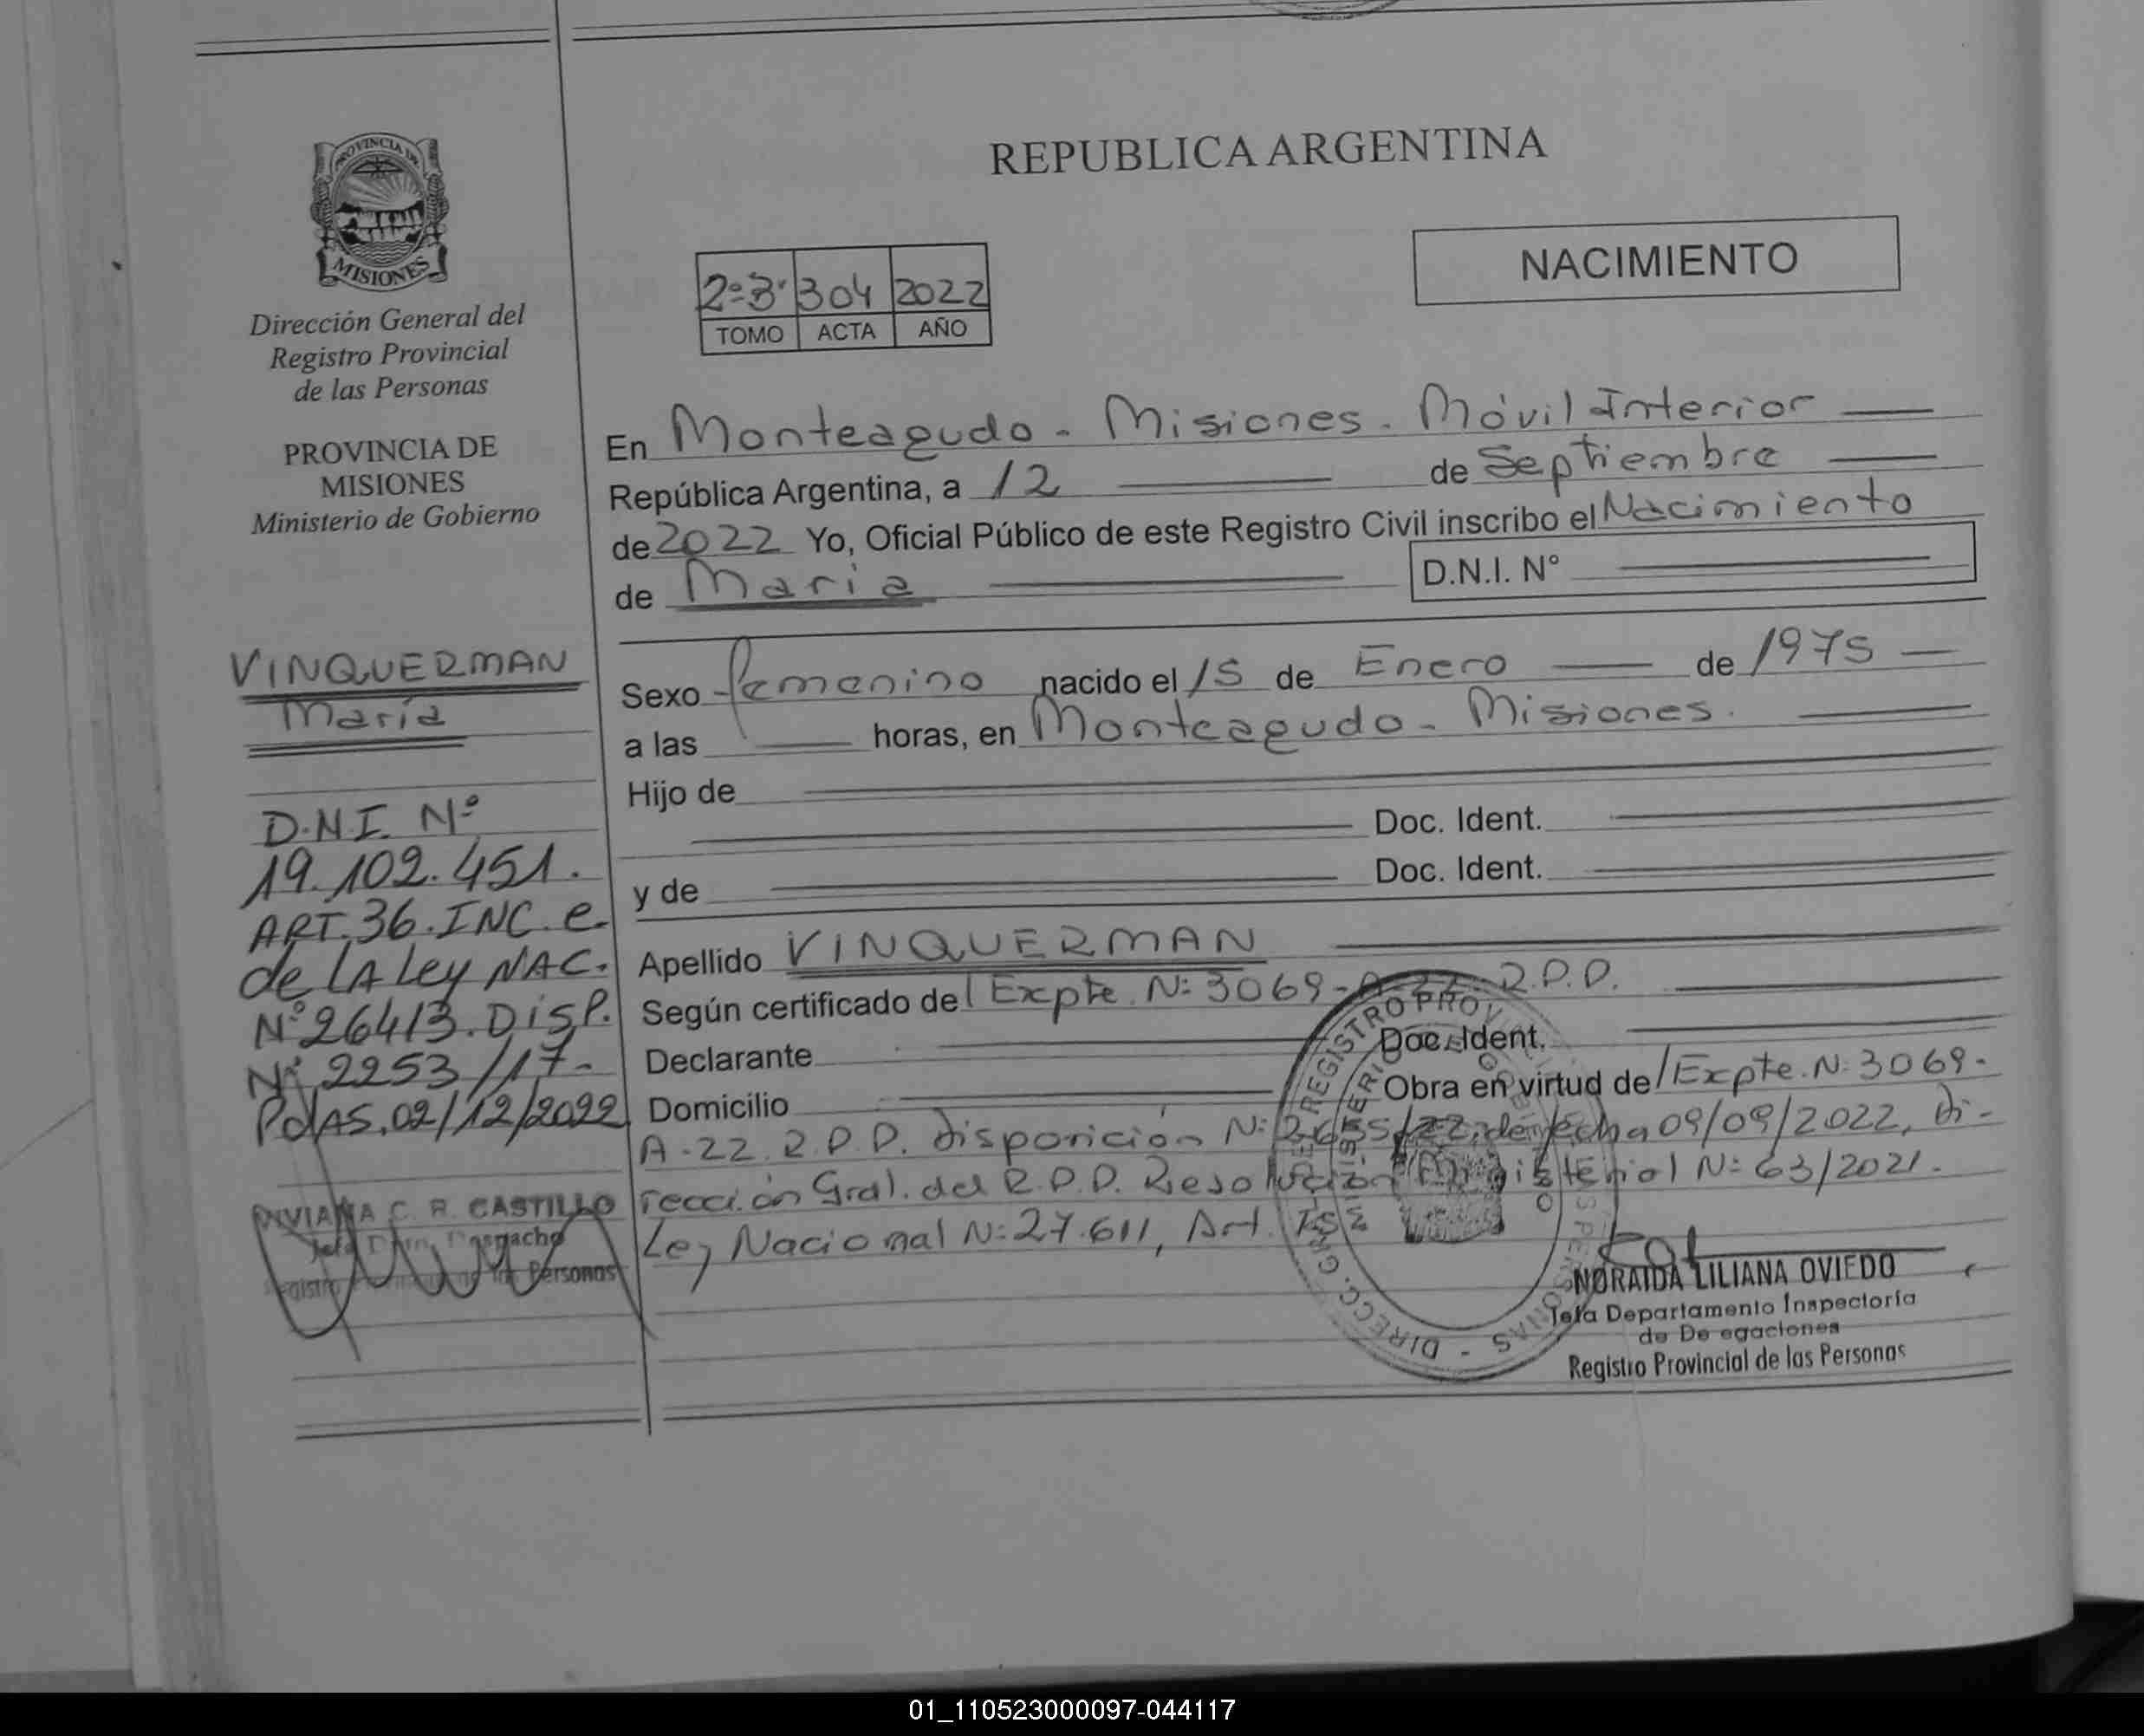 REPUBLICA ARGENTINA
NACIMIENTO
PROVINCIA DE
MISIONES
Dirección General del
Registro Provincial
de las Personas
PROVINCIA DE
MISIONES
Ministerio de Gobierno
2º3º 304 2022
TOMO ACTA AÑO
En Monteagudo - Misiones. Móvil Interior
República Argentina, a 12 de Septiembre
de 2022 Yo, Oficial Público de este Registro Civil inscribo el Nacimiento
de Maria D.N.I. Nº
VINQUERMAN
María
Sexo femenino nacido el 15 de Enero de 1975
a las horas, en Monteagudo - Misiones.
Hijo de
Doc. Ident.
y de Doc. Ident.
Apellido VINQUERMAN
Según certificado de l Expte. N: 3069-A-22- R.P.P.
Declarante Doc. Ident.
Domicilio Obra en virtud de l Expte. N: 3069-
A-22. R.P.P. Disposición N: de fecha 09/09/2022, Di-
rección Gral. del R.P.P. Resolución Ministerial N: 63/2021.
Ley Nacional N: 27.611, Art.
D.N.I. Nº
19.102.451.
ART. 36. INC. e.
de LA Ley NAC.
Nº 26413. DISP.
Nº 2253/17-
PdAS. 02/12/2022
VIVIANA C. R. CASTILLO
Jefa Dpto. Despacho
Registro Personas
NORAIDA LILIANA OVIEDO
Jefa Departamento Inspectoría
de De egaciones
Registro Provincial de las Personas
01_110523000097-044117